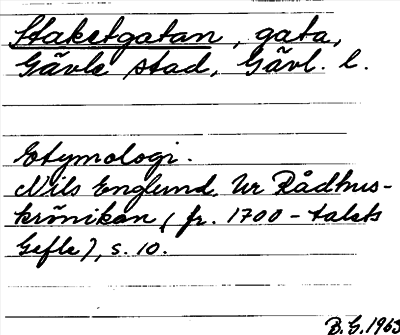 Staketgatan, gata,
Gävle stad, Gävl. l.
Etymologi.
Nils Englund. Ur Rådhus-
krönikan (fr. 1700-talets
Gefle), s. 10.
B.G. 1963